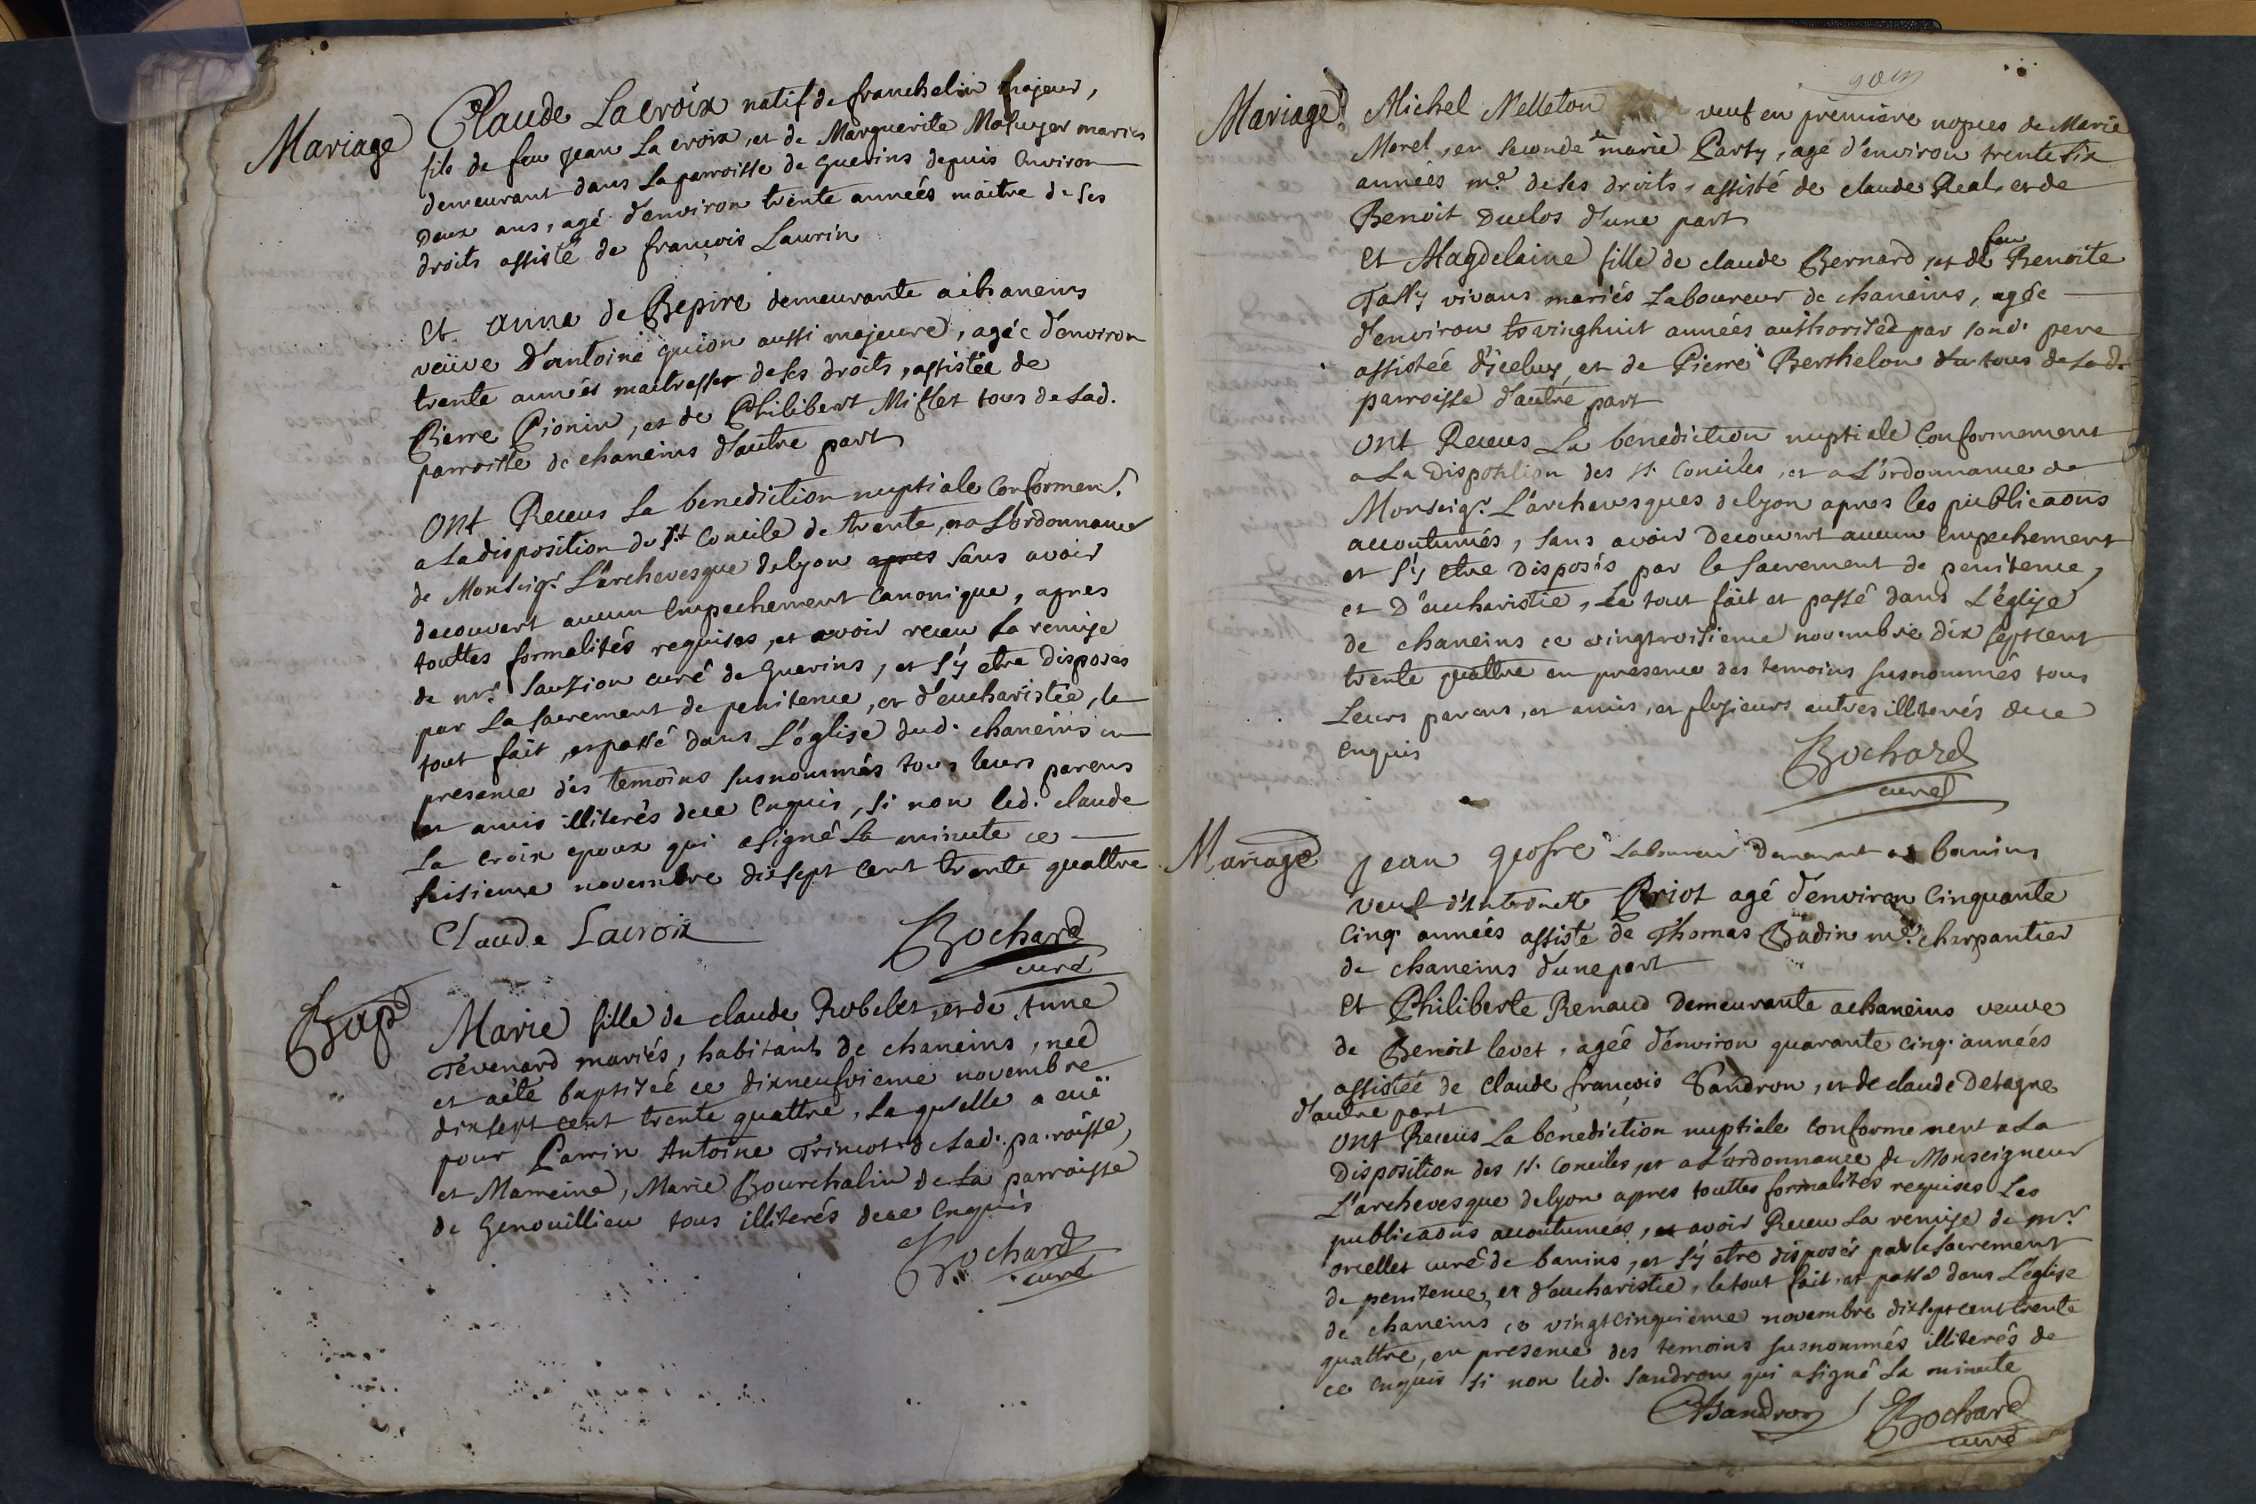 Mariage
Claude Lacroix natif de franchelin majeur,
fils de feu jean La croix, et de Marguerite mariés
demeurant dans La parroisse de Guerins depuis environ
Deux ans, agé d'environ trente années maitre de ses
droits assisté de françois Laurin
Et anne de Bepire demeurante a chaneins
veuve d'antoine guion aussi majeure, agée d'environ
trente années maitresse de ses droits, assistée de
Pierre Pionin, et de Philibert Miflet tous de Lad.
parroisse de chaneins d'autre part
Ont Receus La benediction nuptiale Conformem.t
a La disposition du st Concile de trente, et a L'ordonnance
de Monseigr. L'archevesque de lyon apres sans avoir
decouvert aucun Empechement Canonique, apres
touttes formalités requises, et avoir receu La remise
de mr. Sauzion curé de Guerins, et s'y etre Disposés
par La sacrement de penitence, et d'eucharistie, le
tout fait, et passé dans L'église dud. chaneins en
presence des temoins susnommés tous leurs parens
et amis illiterés de ce Enquis, si non led. claude
La Croix epoux qui a signé La minute ce
seisieme novembre dix sept cent trente quattre
Claude Lacroix
Bochard
curé
Bap
Marie fille de claude Robelet, et de Anne
Tévenard mariés, habitants de chaneins, née
et a été baptisée ce dixneufvieme novembre
dix sept cent trente quattre, La quelle a eüe
pour Parrin Antoine Trimot de Lad. paroisse,
et Marreine, Marie Bourchalin de La parroisse
de Genouillieu tous illiterés de ce Enquis
Bochard
curé
Mariage
Michel Nelleton veuf en premiere nopces de Marie
Morel, en seconde marie Party, agé d'environ trente six
années me. de ses droits, assisté de claude Real, et de
Benoit Duclos d'une part
Et Magdelaine fille de claude Bernard, et de feu Benoite
Tally vivans mariés Laboureur de chaneins, agée
d'environ vinghuit années authorisée par sond. pere
assistée d'iceluy, et de Pierre Berthelon tous de Lad.
parroisse d'autre part
ont Receus La benediction nuptiale Conformement
a La Disposition des st. Conciles, et a L'ordonnance de
Monseigr. L'archevesques de lyon apres les publicaons
accoutumés, sans avoir Decouvert aucun Empechement
et s'y etre Disposés par le sacrement de penitence,
et D'eucharistie, Le tout fait et passé dans L'église
de chaneins ce vingtroisieme novembre dix sept cent
trente quattre en presence des temoins susnommés tous
Leurs parens, et amis, et plusieurs autres illiterés de ce
Enquis
Bochard
curé
Mariage
jean Laboureur Demeurant a banins
veuf d'Antoinette Priot agé d'environ Cinquante
Cinq années assiste de Thomas Badin me. charpantier
de chaneins d'une part
Et Philiberte Renaud Demeurante a chaneins veuve
de Benoit levet, agée d'environ quarante cinq. années
assistée de Claude françois Sandron, et de claude Detagne
d'autre part
ont Receus La bénédiction nuptiale conformement a La
Disposition des st. Conciles, et a L'ordonnance de Monseigneur
L'archevesque de lyon apres touttes formalités requises Les
publicaons accoutumées, et avoir Receu La remise de mr.
orcellet curé de banins, et s'y etre disposés par le sacrement
de penitence, et d'eucharistie, le tout fait, et passé dans L'église
de chaneins ce vingtcinquieme novembre dix sept cent trente
quattre, en presence des temoins susnommés illiterés de
ce Enquis si non led. Sandron qui a signé La minute
Sandron
Bochard
curé